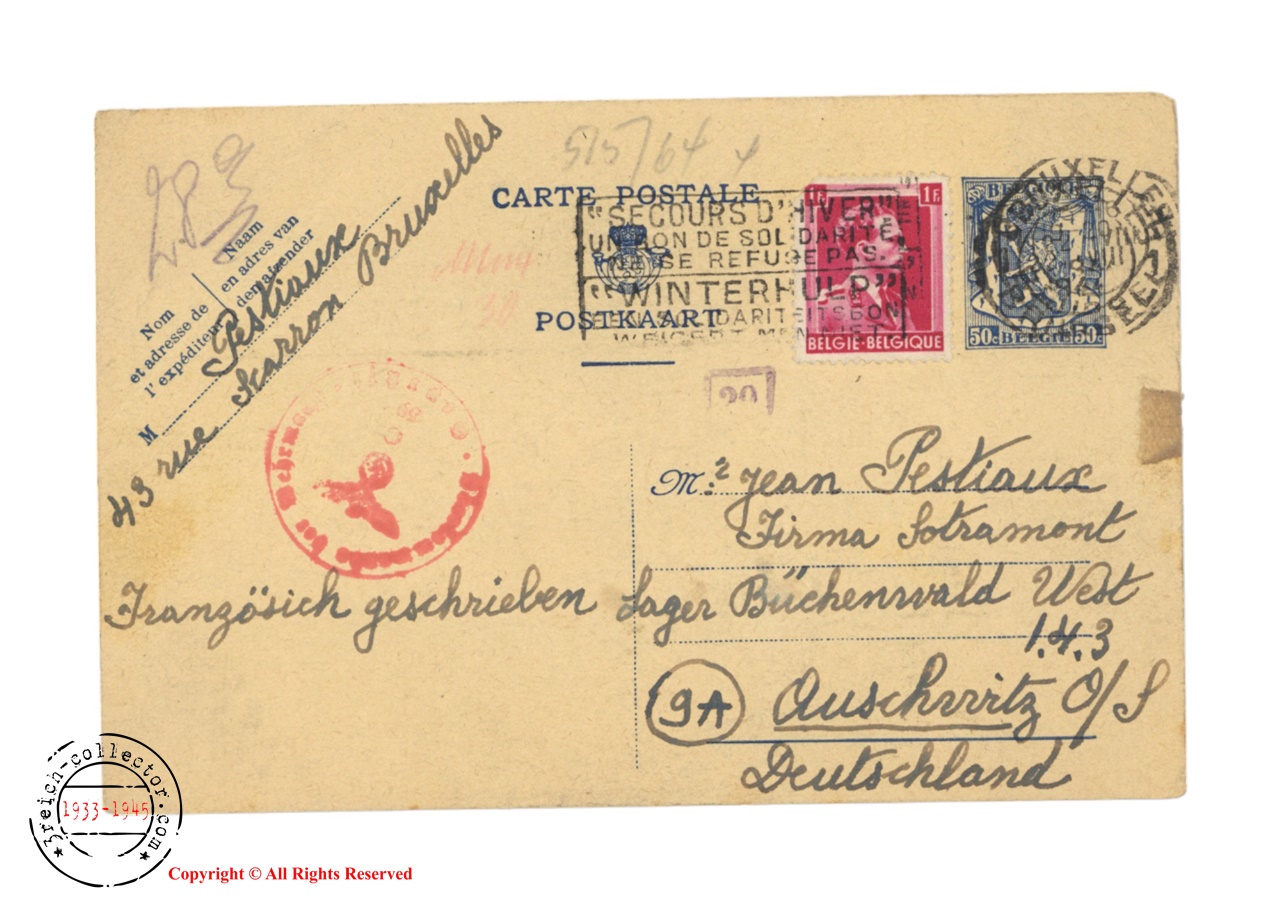 28 3
515/64 x
Naam
en adres van
de afzender
Nom
et adresse de
l'expéditeur
M
Pestiaux
43 rue Scarron Bruxelles
CARTE POSTALE
POSTKAART
"SECOURS D'HIVER"
UN BON DE SOLIDARITÉ
NE SE REFUSE PAS.
"WINTERHULP"
EEN SOLIDARITEITSBON
WEIGERT MEN NIET
1F 1F
BELGIE-BELGIQUE
BELGIQUE
50c BELGIË 50c
BRUXELLES
BRUSSEL
20
der Wehrmacht
M.r Jean Pestiaux
Firma Sotramont
Französich geschrieben Lager Büchenwald West
1.4.3
9A Auschwitz O/S
Deutschland
3reich-collector.com
1933-1945
Copyright © All Rights Reserved